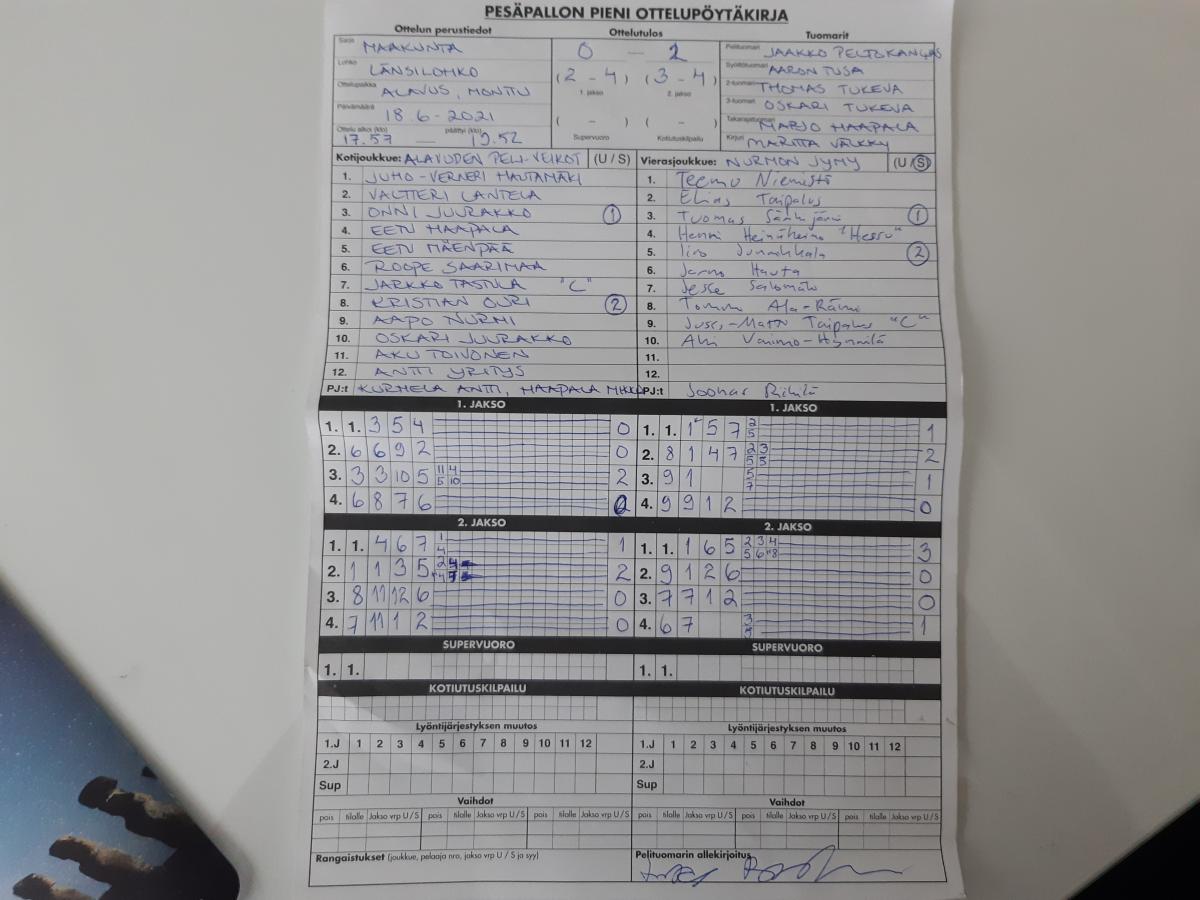 PESÄPALLON PIENI OTTELUPÖYTÄKIRJA
Ottelun perustiedot Ottelutulos Tuomarit
Sarja MAAKUNTA 0 — 2 Pelituomari JAAKKO PELTOKANGAS
Lohko LÄNSILOHKO (2 - 4) (3 - 4) Syöttötuomari AARON TUSA
Ottelupaikka ALAVUS, MONTTU 1. jakso 2. jakso 2-tuomari THOMAS TUKEVA
Päivämäärä 18.6-2021 3-tuomari OSKARI TUKEVA
( - ) ( - ) Takarajatuomari MARJO HAAPALA
Ottelu alkoi (klo) 17.57 — päättyi (klo) 19.52 Supervuoro Kotiutuskilpailu Kirjuri MARITTA VÄLKKY
Kotijoukkue: ALAVUDEN PELI-VEIKOT (U / S) Vierasjoukkue: NURMON JYMY (U / S)
1. JUHO-VERNERI HAUTAMÄKI 1. Teemu Niemistö
2. VALTTERI LANTELA 2. Elias Taipalus
3. ONNI JUURAKKO 1 3. Tuomas 1
4. EETU HAAPALA 4. Henri "Hessu"
5. EETU MÄENPÄÄ 5. Iiro 2
6. ROOPE SAARIMAA 6. Jarno Hauta
7. JARKKO TASTULA "C" 7. Jesse Salomäki
8. KRISTIAN OJRI 2 8. Tommi Ala-Rämi
9. AAPO NURMI 9. Jussi-Matti Taipalus "C"
10. OSKARI JUURAKKO 10.
11. AKU TOIVONEN 11.
12. ANTTI YRITYS 12.
PJ:t KURHELA ANTTI, HAAPALA MIKKO PJ:t Joonas
1. JAKSO 1. JAKSO
1. 1. 3 5 4 0 1. 1. 1 5 7 2 5 1
2. 6 6 9 2 0 2. 8 1 4 7 2 3 5 5 2
3. 3 3 10 5 11 4 5 10 2 3. 9 1 5 7 1
4. 6 8 7 6 0 4. 9 9 1 2 0
2. JAKSO 2. JAKSO
1. 1. 4 6 7 1 4 1 1. 1. 1 6 5 2 3 4 5 6 8 3
2. 1 1 3 5 2 2. 9 1 2 6 0
3. 8 11 12 6 0 3. 7 7 1 2 0
4. 7 11 1 2 0 4. 6 7 1
SUPERVUORO SUPERVUORO
1. 1. 1. 1.
KOTIUTUSKILPAILU KOTIUTUSKILPAILU
Lyöntijärjestyksen muutos Lyöntijärjestyksen muutos
1.J 1 2 3 4 5 6 7 8 9 10 11 12 1.J 1 2 3 4 5 6 7 8 9 10 11 12
2.J 2.J
Sup Sup
Vaihdot Vaihdot
pois tilalle Jakso vrp U / S pois tilalle Jakso vrp U / S pois tilalle Jakso vrp U / S pois tilalle Jakso vrp U / S pois tilalle Jakso vrp U / S pois tilalle Jakso vrp U / S
Rangaistukset (joukkue, pelaaja nro, jakso vrp U / S ja syy) Pelituomarin allekirjoitus